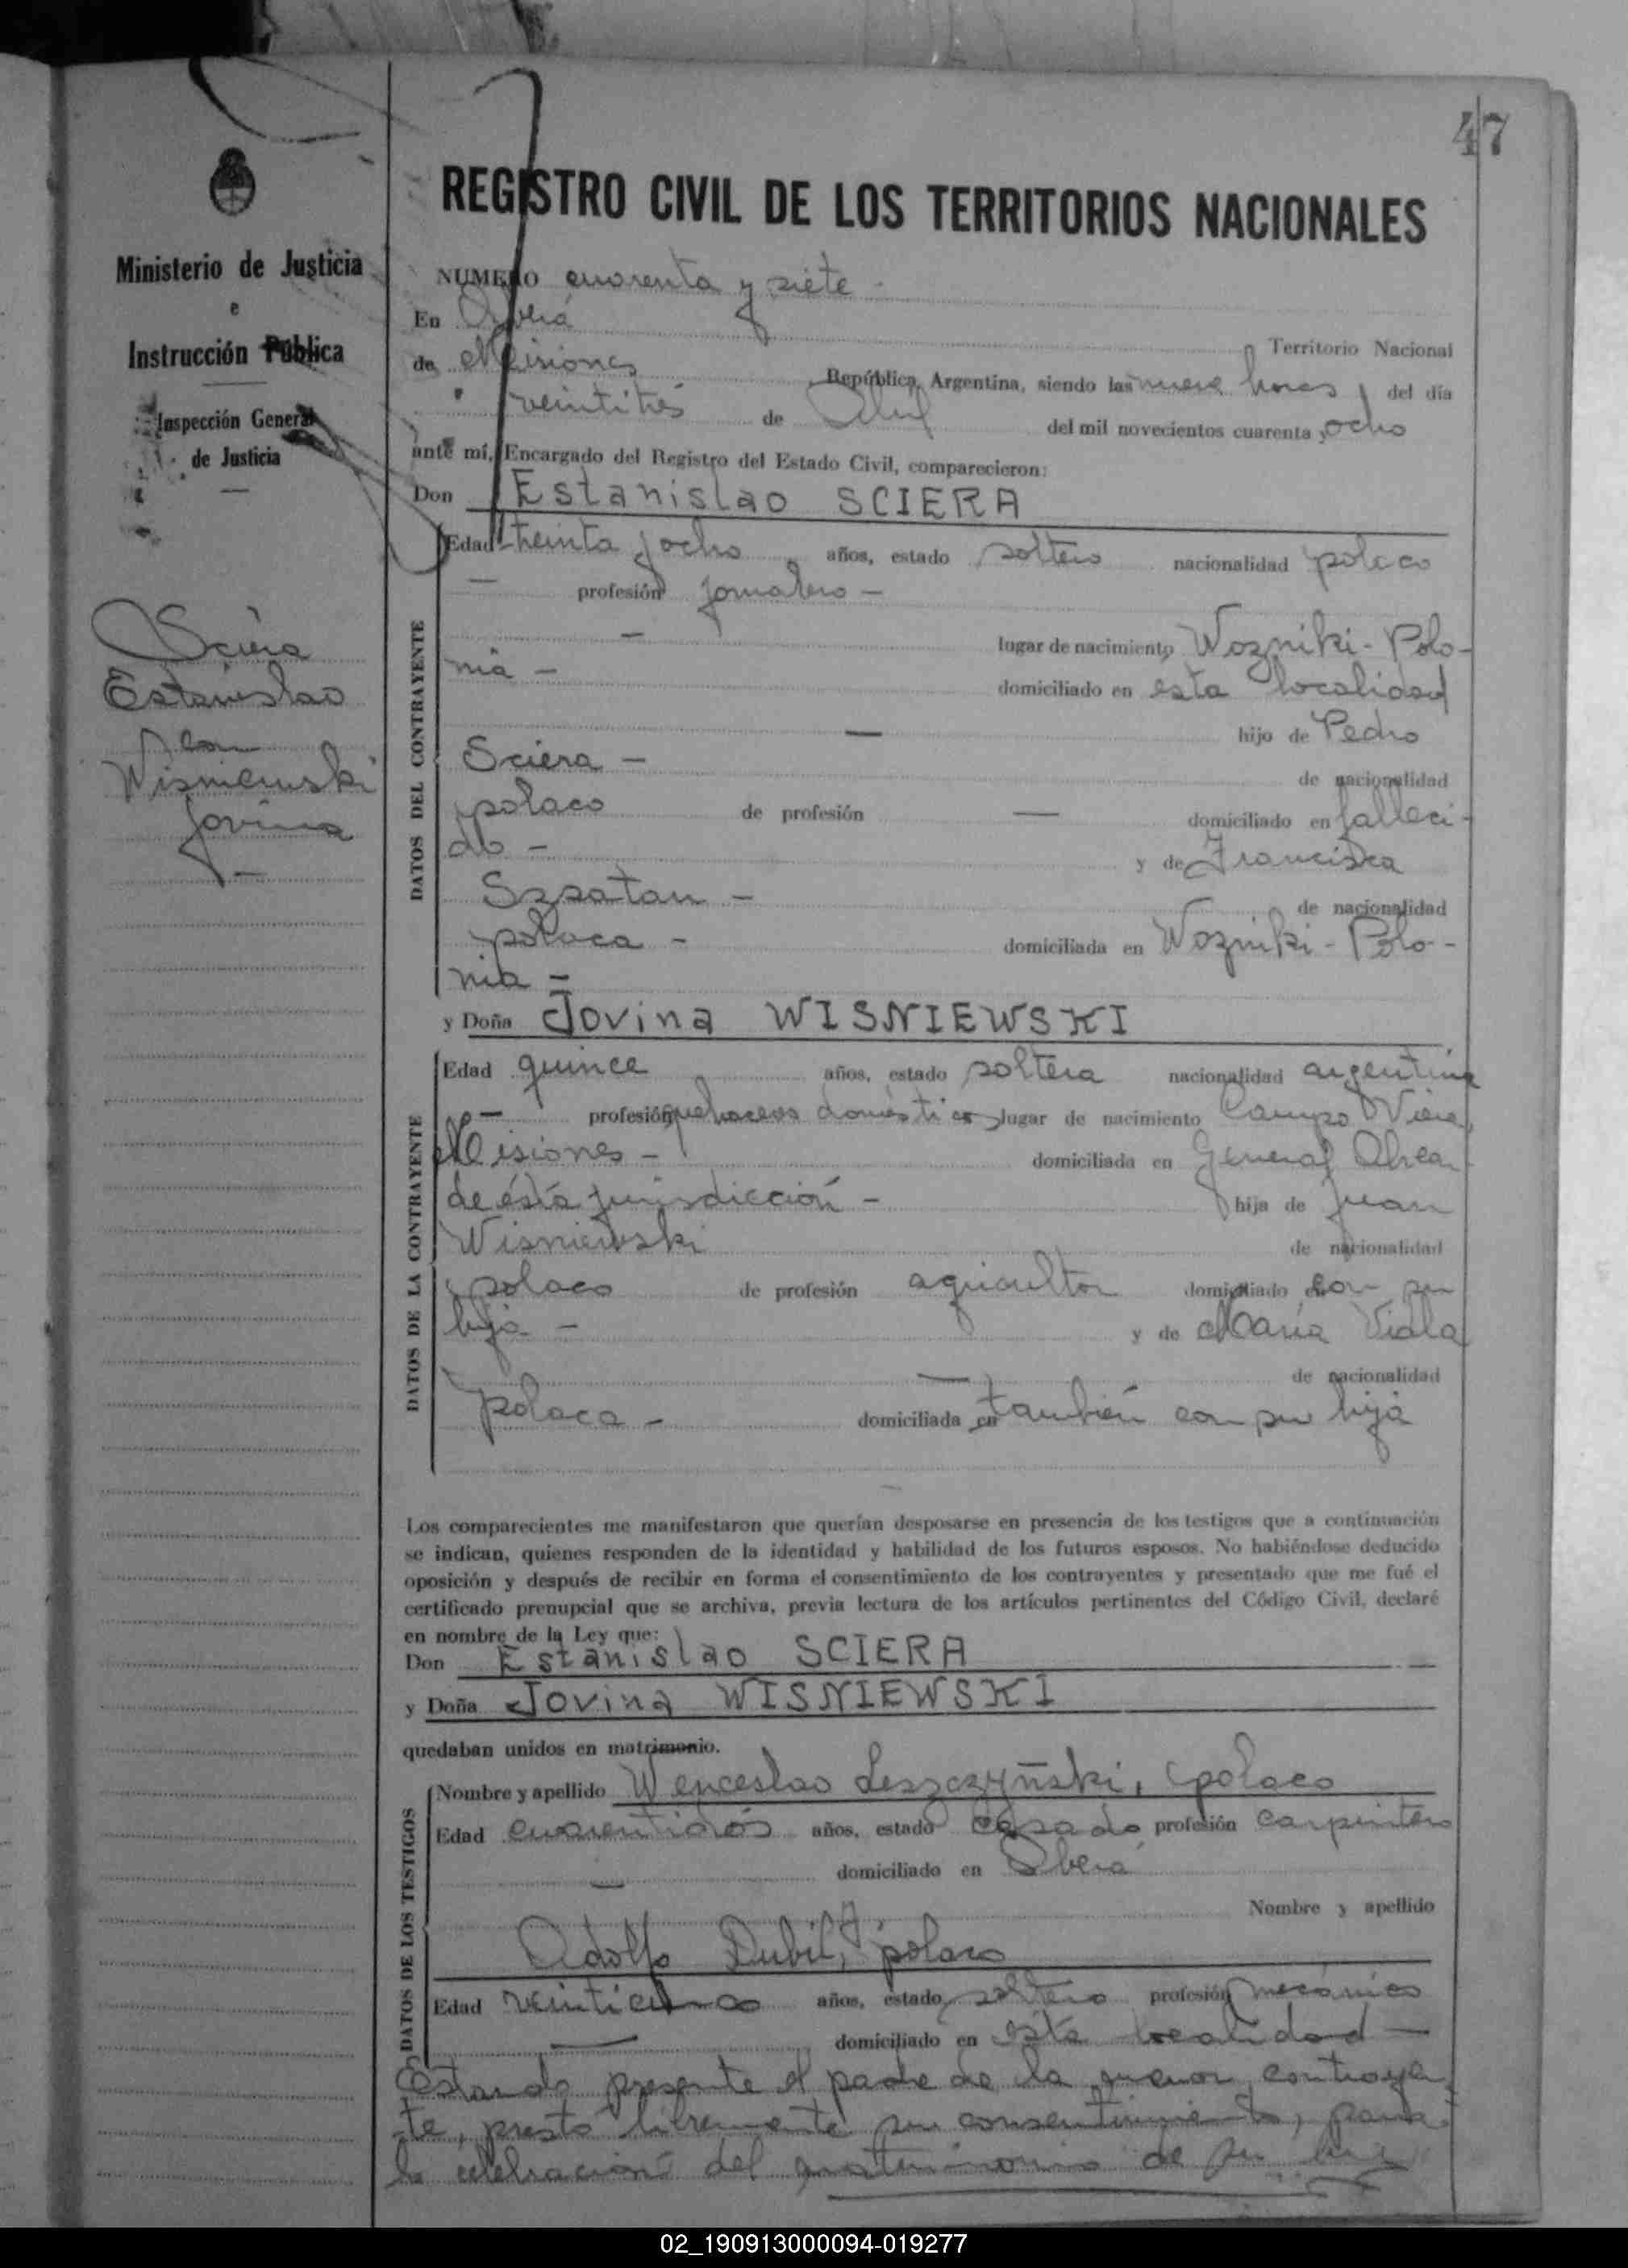 47
Ministerio de Justicia
e
Instrucción Pública
Inspección General
de Justicia
Sciera
Estanislao
con
Wisniewski
Jovina
REGISTRO CIVIL DE LOS TERRITORIOS NACIONALES
NUMERO cuarenta y siete -
En Oberá
Territorio Nacional
de Misiones República Argentina, siendo las nueve horas del día
veintitrés de Abril del mil novecientos cuarenta y ocho
ante mí, Encargado del Registro del Estado Civil, comparecieron:
Don Estanislao SCIERA
DATOS DEL CONTRAYENTE
Edad treinta y ocho años, estado soltero nacionalidad polaco
— profesión jornalero —
— lugar de nacimiento Wozniki - Polo-
nia — domiciliado en esta localidad
— hijo de Pedro
Sciera — de nacionalidad
polaco de profesión — domiciliado en falleci-
do — y de Franciska
Szsatan — de nacionalidad
polaca - domiciliada en Wozniki - Polo-
nia =
y Doña Jovina WISNIEWSKI
DATOS DE LA CONTRAYENTE
Edad quince años, estado soltera nacionalidad argentina
— profesión quehaceres domésticos lugar de nacimiento Campo Viera,
Misiones — domiciliada en General Alvear
de ésta jurisdicción — hija de Juan
Wisniewski de nacionalidad
polaco de profesión agricultor domiciliado con su
hija — y de María Viala
— de nacionalidad
polaca — domiciliada en también con su hija
Los comparecientes me manifestaron que querían desposarse en presencia de los testigos que a continuación
se indican, quienes responden de la identidad y habilidad de los futuros esposos. No habiéndose deducido
oposición y después de recibir en forma el consentimiento de los contrayentes y presentado que me fué el
certificado prenupcial que se archiva, previa lectura de los artículos pertinentes del Código Civil, declaré
en nombre de la Ley que:
Don Estanislao SCIERA
y Doña Jovina WISNIEWSKI
quedaban unidos en matrimonio.
DATOS DE LOS TESTIGOS
Nombre y apellido Wenceslao Leszczyñski, polaco
Edad cuarentidós años, estado casado profesión carpintero
— domiciliado en Oberá
Nombre y apellido
Adolfo Dubil, polaco
Edad veinticinco años, estado soltero profesión mecánico
— domiciliado en esta localidad —
Estando presente el padre de la menor contrayen
te, prestó libremente su consentimiento, para
la celebración del matrimonio de su hija
02_190913000094-019277